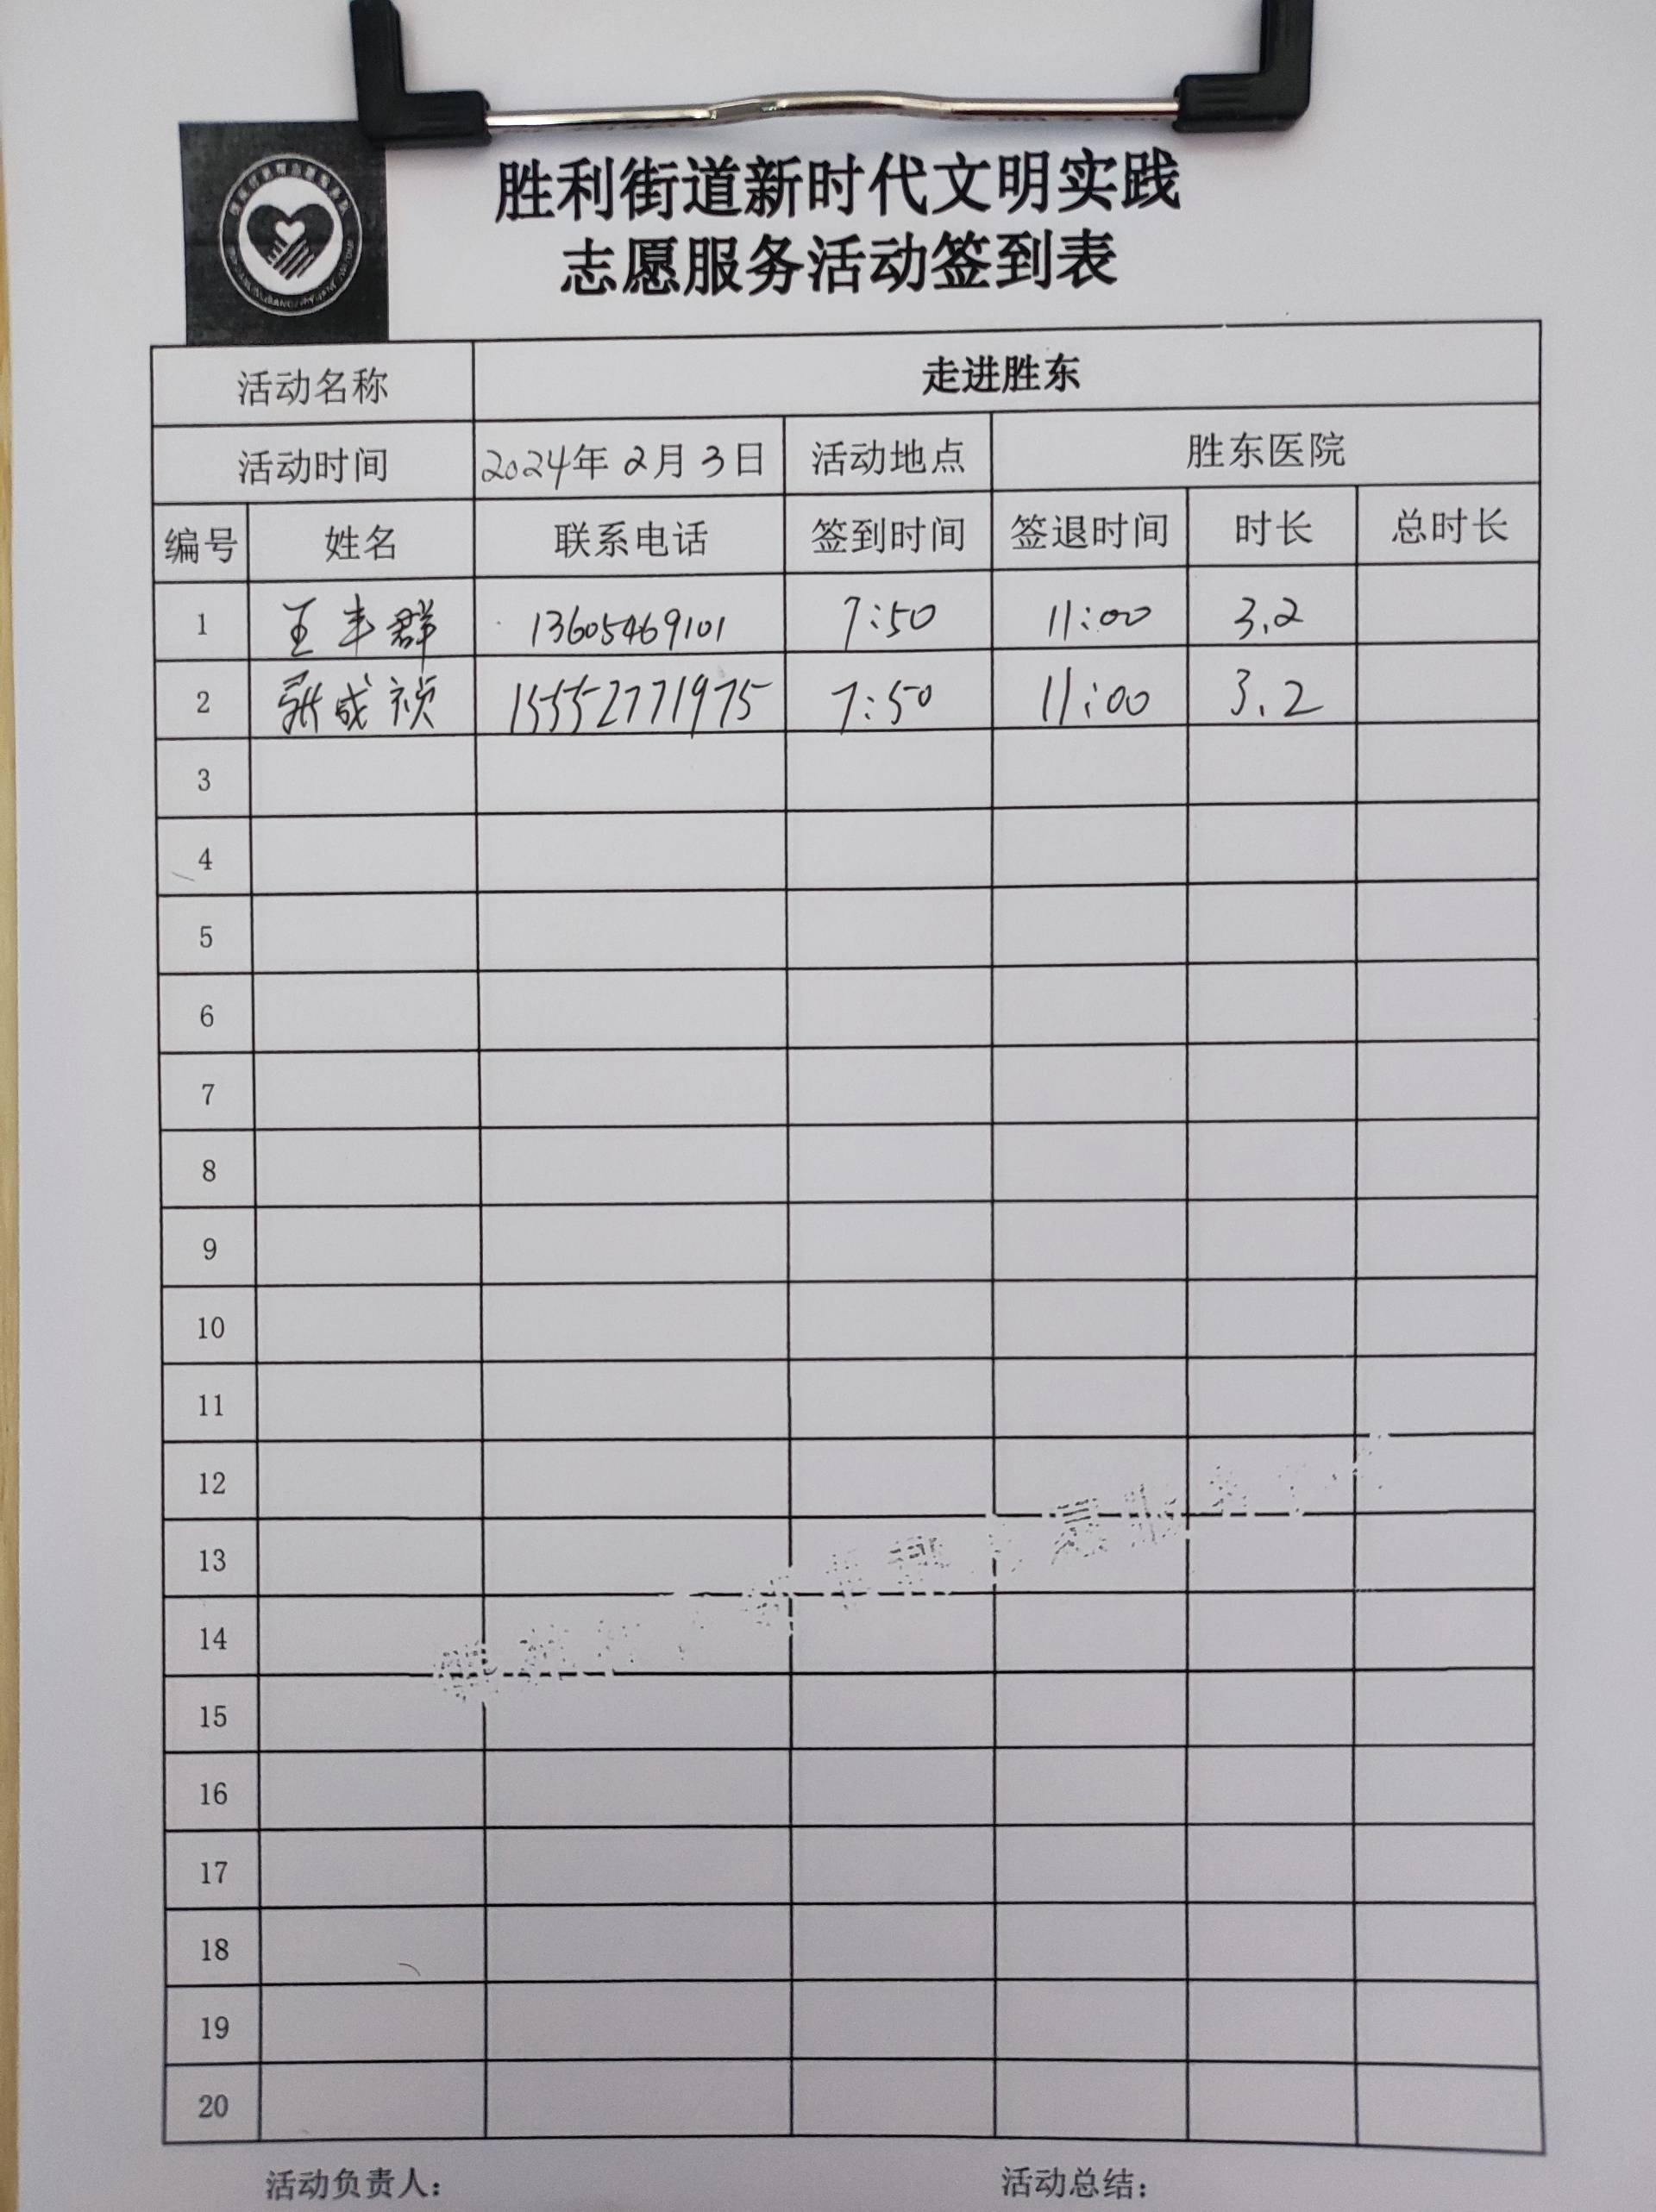 胜利街道新时代文明实践
志愿服务活动签到表
活动名称 走进胜东
活动时间 2024年 2月 3日 活动地点 胜东医院
编号 姓名 联系电话 签到时间 签退时间 时长 总时长
1 王丰群 13605469101 7:50 11:00 3.2
2 成祯 15552771975 7:50 11:00 3.2
3
4
5
6
7
8
9
10
11
12
13
14
15
16
17
18
19
20
活动负责人： 活动总结：